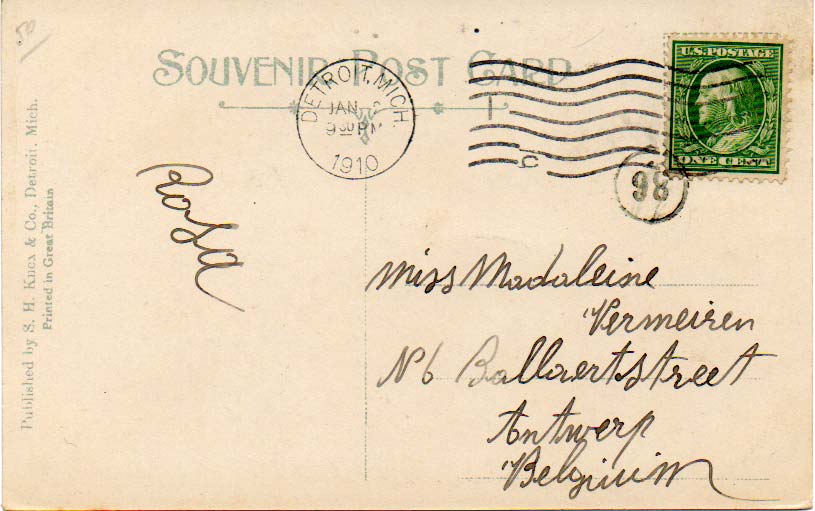 50
SOUVENIR POST CARD
DETROIT, MICH.
JAN
9 30 PM
1910
U.S. POSTAGE
ONE CENT
98
Rosa
Miss Madaleine
Vermeiren
No 6 Ballaertstreet
Antwerp
Belgium
Published by S. H. Knox & Co., Detroit, Mich.
Printed in Great Britain